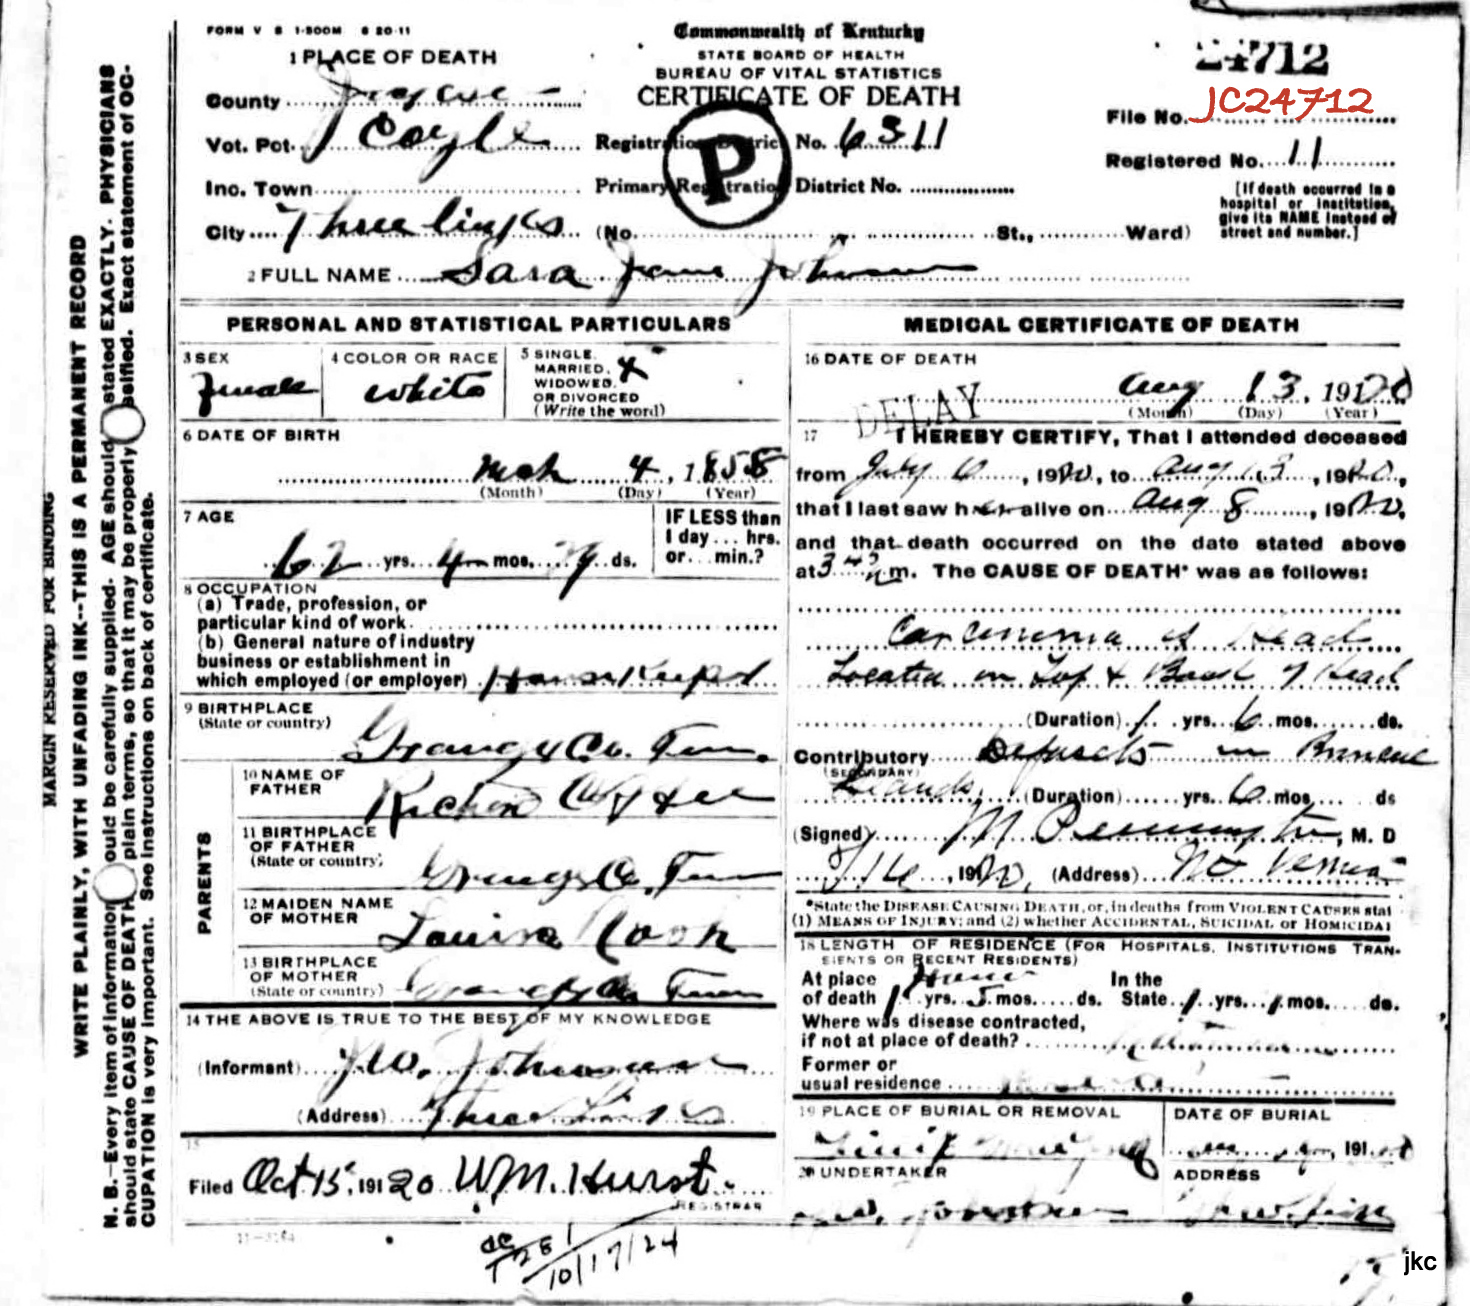 FORM V S 1-500M 6 20-11
Commonwealth of Kentucky
STATE BOARD OF HEALTH
BUREAU OF VITAL STATISTICS
CERTIFICATE OF DEATH
24712
File No. JC24712
Registered No. 11
[If death occurred in a
hospital or institution,
give its NAME instead of
street and number.]
1 PLACE OF DEATH
County
Vot. Pct. Coyle
Registration District No. 6311
P
Inc. Town
Primary Registration District No.
City Three links (No. St., Ward)
2 FULL NAME Sara Jane Johnson
PERSONAL AND STATISTICAL PARTICULARS
3 SEX
Female
4 COLOR OR RACE
white
5 SINGLE.
MARRIED. X
WIDOWED.
OR DIVORCED
(Write the word)
6 DATE OF BIRTH
Mch 4, 1858
(Month) (Day) (Year)
7 AGE
62 yrs. 4 mos. 29 ds.
IF LESS than
1 day... hrs.
or... min.?
8 OCCUPATION
(a) Trade, profession, or
particular kind of work
(b) General nature of industry
business or establishment in
which employed (or employer)
9 BIRTHPLACE
(State or country)
Co. Tenn.
PARENTS
10 NAME OF
FATHER
11 BIRTHPLACE
OF FATHER
(State or country)
Co. Tenn
12 MAIDEN NAME
OF MOTHER
Louisa Cook
13 BIRTHPLACE
OF MOTHER
(State or country)
Co Tenn
14 THE ABOVE IS TRUE TO THE BEST OF MY KNOWLEDGE
(Informant) J.W. Johnson
(Address) Three Links
15
Filed Oct 15, 191 20 W.M. Hurst
REGISTRAR
11-3184
10/17/24
MEDICAL CERTIFICATE OF DEATH
16 DATE OF DEATH
Aug 13, 1920
(Month) (Day) (Year)
DELAY
17 I HEREBY CERTIFY, That I attended deceased
from July 6, 1920, to Aug 13, 1920,
that I last saw her alive on Aug 8, 1920,
and that death occurred on the date stated above
at 3 m. The CAUSE OF DEATH* was as follows:
Carcinoma of Head
Located on Top & Back of Head
(Duration) 1 yrs. 6 mos. ds.
Contributory in
(SECONDARY)
(Duration) yrs. 6 mos. ds
(Signed) M Pennington, M. D
1920, (Address) Mt Vernon
*State the DISEASE CAUSING DEATH, or, in deaths from VIOLENT CAUSES stat
(1) MEANS OF INJURY; and (2) whether ACCIDENTAL, SUICIDAL or HOMICIDAL
18 LENGTH OF RESIDENCE (FOR HOSPITALS, INSTITUTIONS TRAN-
SIENTS OR RECENT RESIDENTS)
At place
of death 1 yrs. 5 mos. ds.
In the
State 1 yrs. 1 mos. ds.
Where was disease contracted,
if not at place of death?
Former or
usual residence
19 PLACE OF BURIAL OR REMOVAL
DATE OF BURIAL
191
20 UNDERTAKER
ADDRESS
jkc
MARGIN RESERVED FOR BINDING
WRITE PLAINLY, WITH UNFADING INK--THIS IS A PERMANENT RECORD
N. B.—Every item of information should be carefully supplied. AGE should stated EXACTLY. PHYSICIANS
should state CAUSE OF DEATH plain terms, so that it may be properly classified. Exact statement of OC-
CUPATION is very important. See instructions on back of certificate.